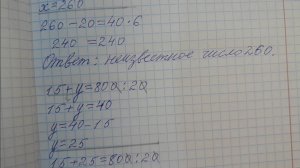 x=260
260-20=40·6
240 =240
Ответ: неизвестное число260.
15+y=800:20
15+y=40
y=40-15
y=25
15+25=800:20